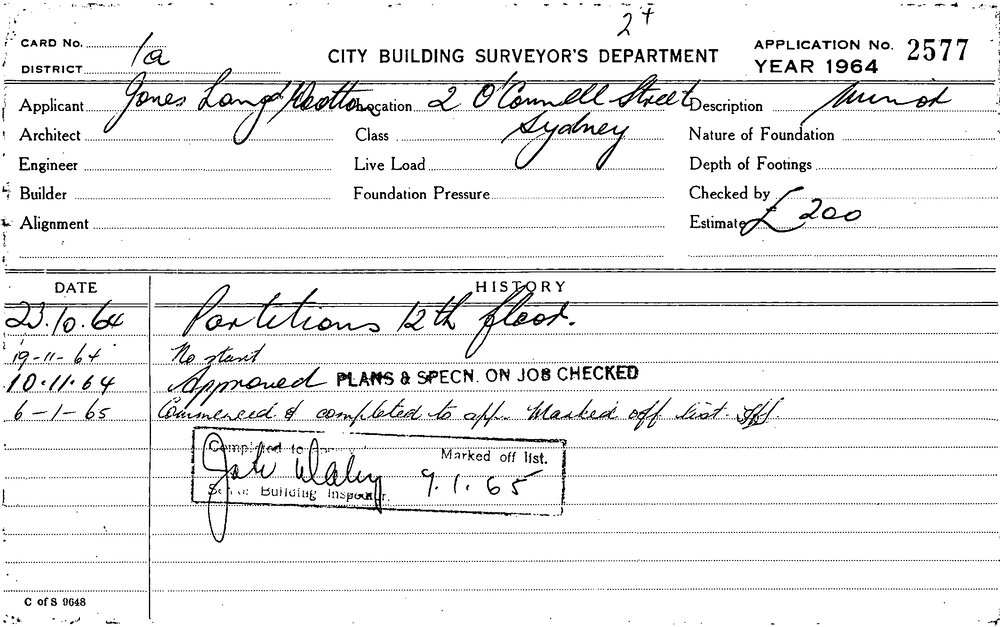 2+
CARD No. CITY BUILDING SURVEYOR'S DEPARTMENT APPLICATION No. 2577
DISTRICT 1a YEAR 1964
Applicant Jones Lang Wootton Location 2 O'Connell Street Description Minor
Architect Class Sydney Nature of Foundation
Engineer Live Load Depth of Footings
Builder Foundation Pressure Checked by
Alignment Estimate £ 200
DATE HISTORY
23.10.64 Partitions 12th floor.
19-11-64 No start
10.11.64 Approved PLANS & SPECN. ON JOB CHECKED
6-1-65 Commenced & completed to app. Marked off list.
Completed to Marked off list.
9.1.65
Senior Building Inspector.
C of S 9648